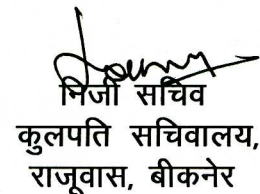 निजी सचिव
कुलपति सचिवालय,
राजूवास, बीकनेर